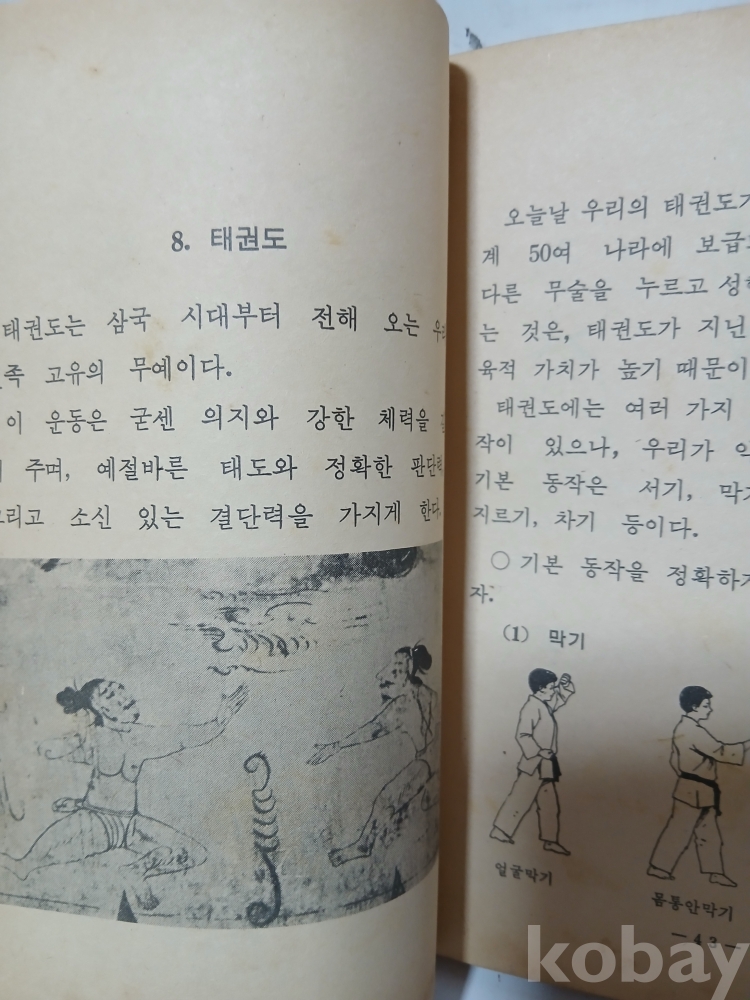 8. 태권도
태권도는 삼국 시대부터 전해 오는
고유의 무예이다.
이 운동은 굳센 의지와 강한 체력을
주며, 예절바른 태도와 정확한 판단력
그리고 소신 있는 결단력을 가지게 한다.
오늘날 우리의 태권도가
계 50여 나라에 보급
다른 무술을 누르고 성
는 것은, 태권도가 지닌
육적 가치가 높기 때문이
태권도에는 여러 가지
작이 있으나, 우리가
기본 동작은 서기, 막기
지르기, 차기 등이다.
○ 기본 동작을 정확하게
자.
(1) 막기
얼굴막기
몸통안막기
—43—
kobay